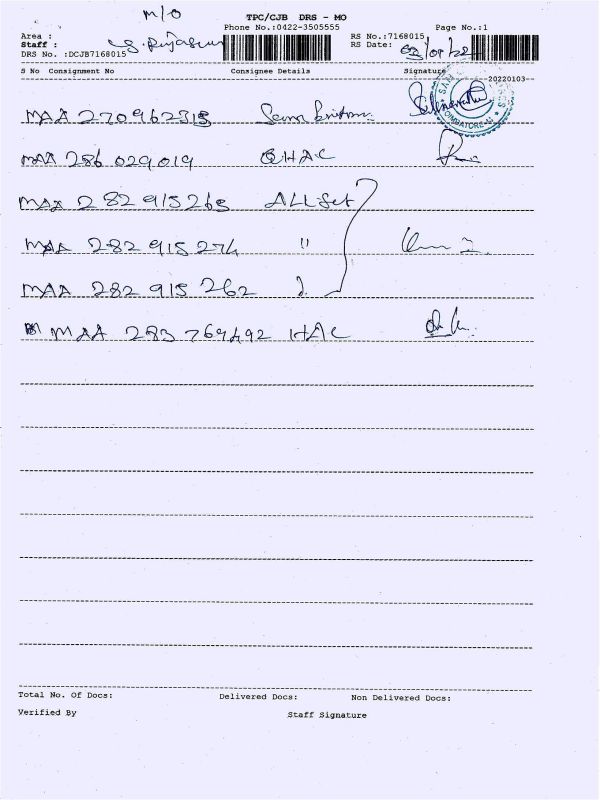 M/O
TPC/CJB DRS - MO
Phone No.:0422-3505555 Page No.:1
Area :
RS No.:7168015
Staff :
RS Date: 03/01/22
DRS No. :DCJB7168015
S No Consignment No Consignee Details Signature
20220103
MAA 270962315
COIMBATORE
MAA 286 029019 QHAC
MAA 282 915265 ALL Set
MAA 282 915 274 "
MAA 282 915 262
MAA 283 769492 HAC
Total No. Of Docs: Delivered Docs: Non Delivered Docs:
Verified By Staff Signature